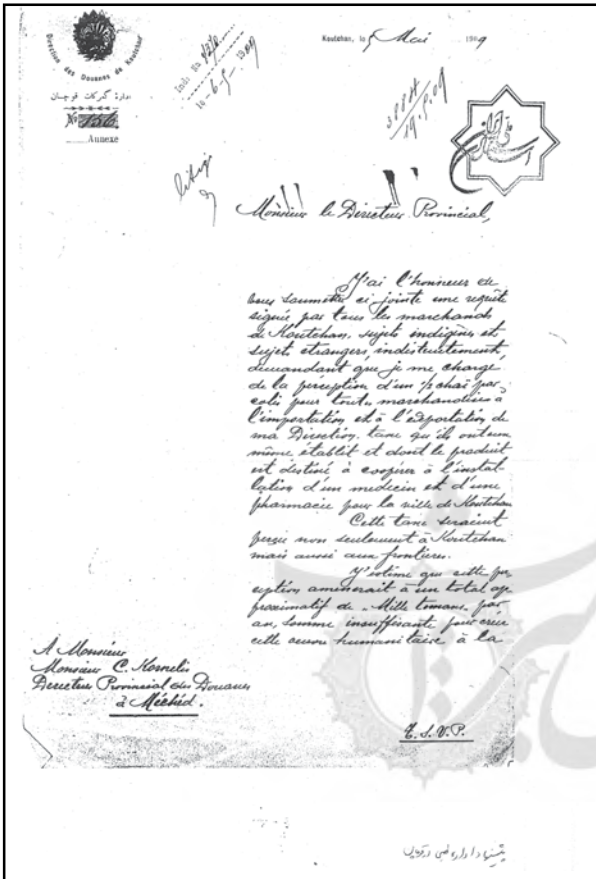 Direction des Douanes de Koutchan
اداره گمرکات قوچان
No 156
Annexe
Koutchan, le 5 Mai 1909
10-6-5-1909
19.5.09
litige
Monsieur le Directeur Provincial,
J'ai l'honneur de
vous soumettre ci jointe une requête
signée par tous les marchands
de Koutchan, sujets indigènes et
sujets étrangers, indistinctement,
demandant que je me charge
de la perception d'un ½ chaï par
colis pour toutes marchandises à
l'importation et à l'exportation de
ma Direction, taxe qu'ils ont eux
même établit et dont le produit
est destiné à coopérer à l'instal-
lation d'un médecin et d'une
pharmacie pour la ville de Koutchan
Cette taxe seraient
perçue non seulement à Koutchan
mais aussi aux frontières.
J'estime que cette per
ception amènerait à un total ap
proximatif de "Mille tomans" par
an, somme insuffisante pour créer
cette œuvre humanitaire à la
A Monsieur
Monsieur C. Kornelis
Directeur Provincial des Douanes
à Méched.
T. S. V. P.